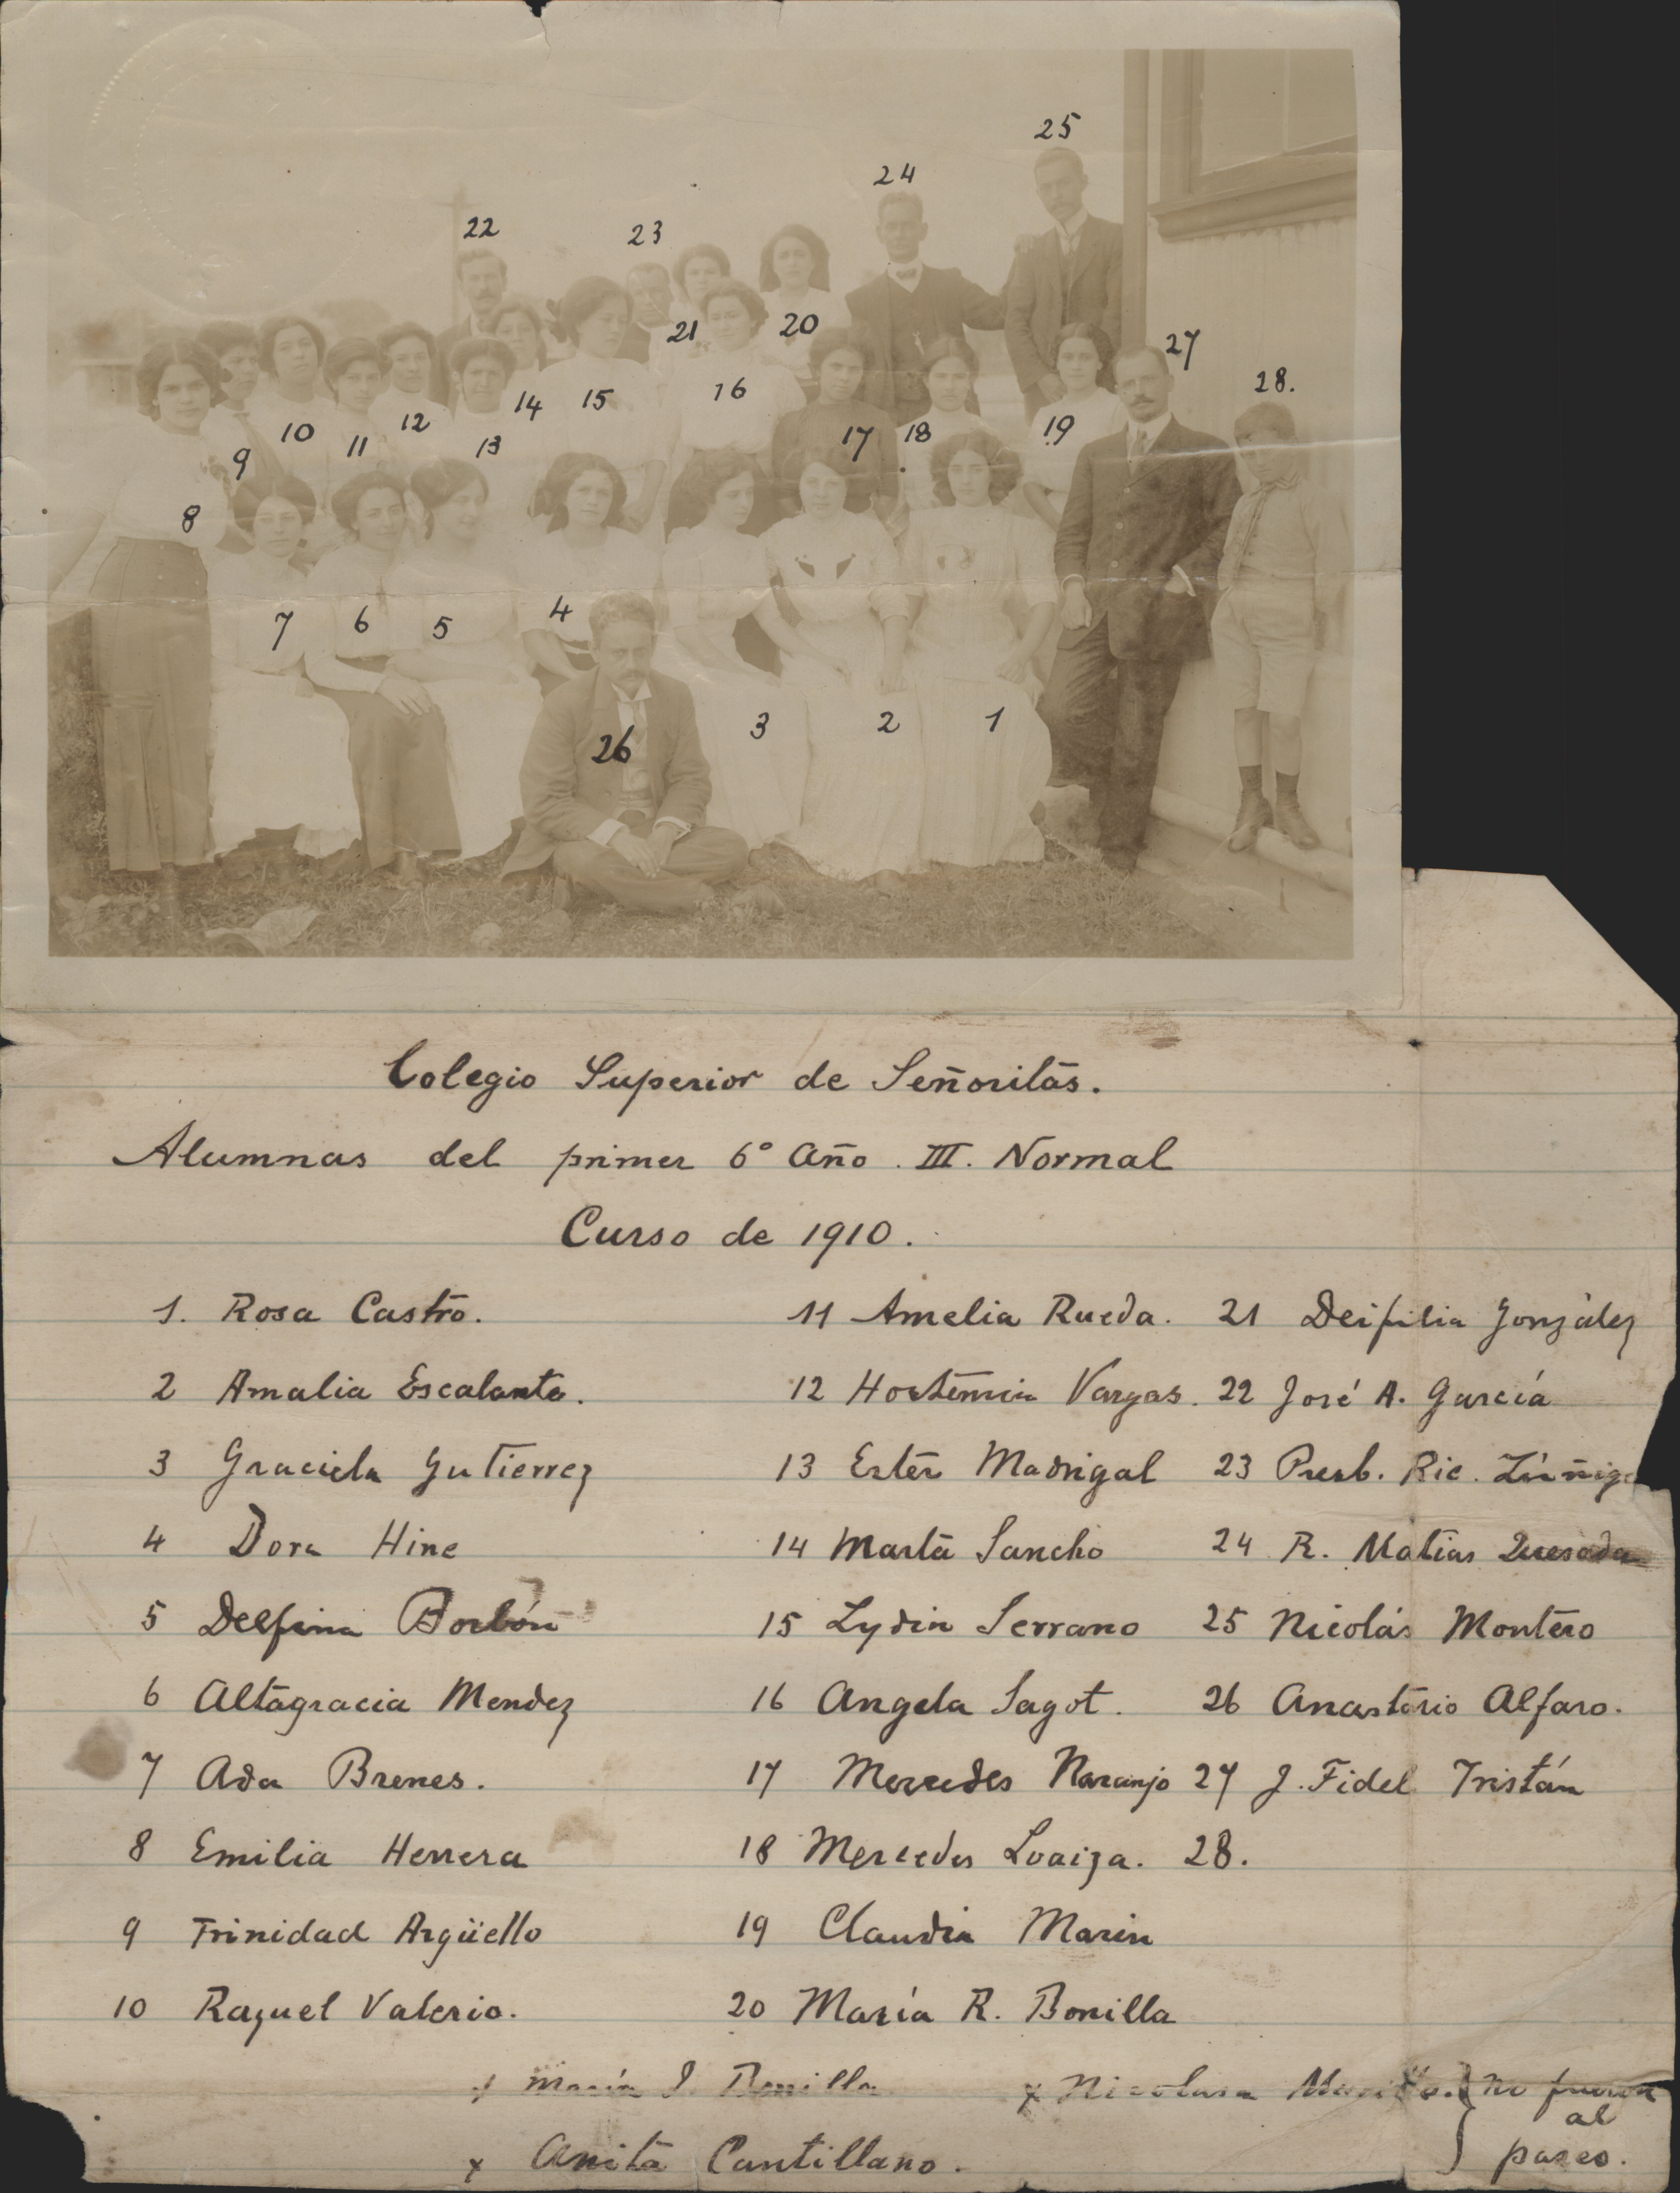 25
24
22
23
21
20
27
28.
16
14
15
10
11
12
13
17
18
19
9
8
7
6
5
4
3
2
1
26
Colegio Superior de Señoritas.
Alumnas del primer 6° Año. III. Normal
Curso de 1910.
1. Rosa Castro. 11 Amelia Rueda. 21 Deifilia González
2 Amalia Escalante. 12 Hortensia Vargas. 22 José A. García
3 Graciela Gutierrez 13 Ester Madrigal 23 Presb. Ric. Zúñiga
4 Dora Hine 14 Marta Sancho 24 R. Matías Quesada
5 Delfina Borbón 15 Lydia Serrano 25 Nicolás Montero
6 Altagracia Mendez 16 Angela Sagot. 26 Anastasio Alfaro.
7 Ada Brenes. 17 Mercedes Naranjo 27 J. Fidel Tristán
8 Emilia Herrera 18 Mercedes Loaiza. 28.
9 Trinidad Argüello 19 Claudia Marin
10 Raquel Valerio. 20 María R. Bonilla
x María I. Bonilla x Nicolasa } no fueron
al
x Anita Cantillano. paseo.